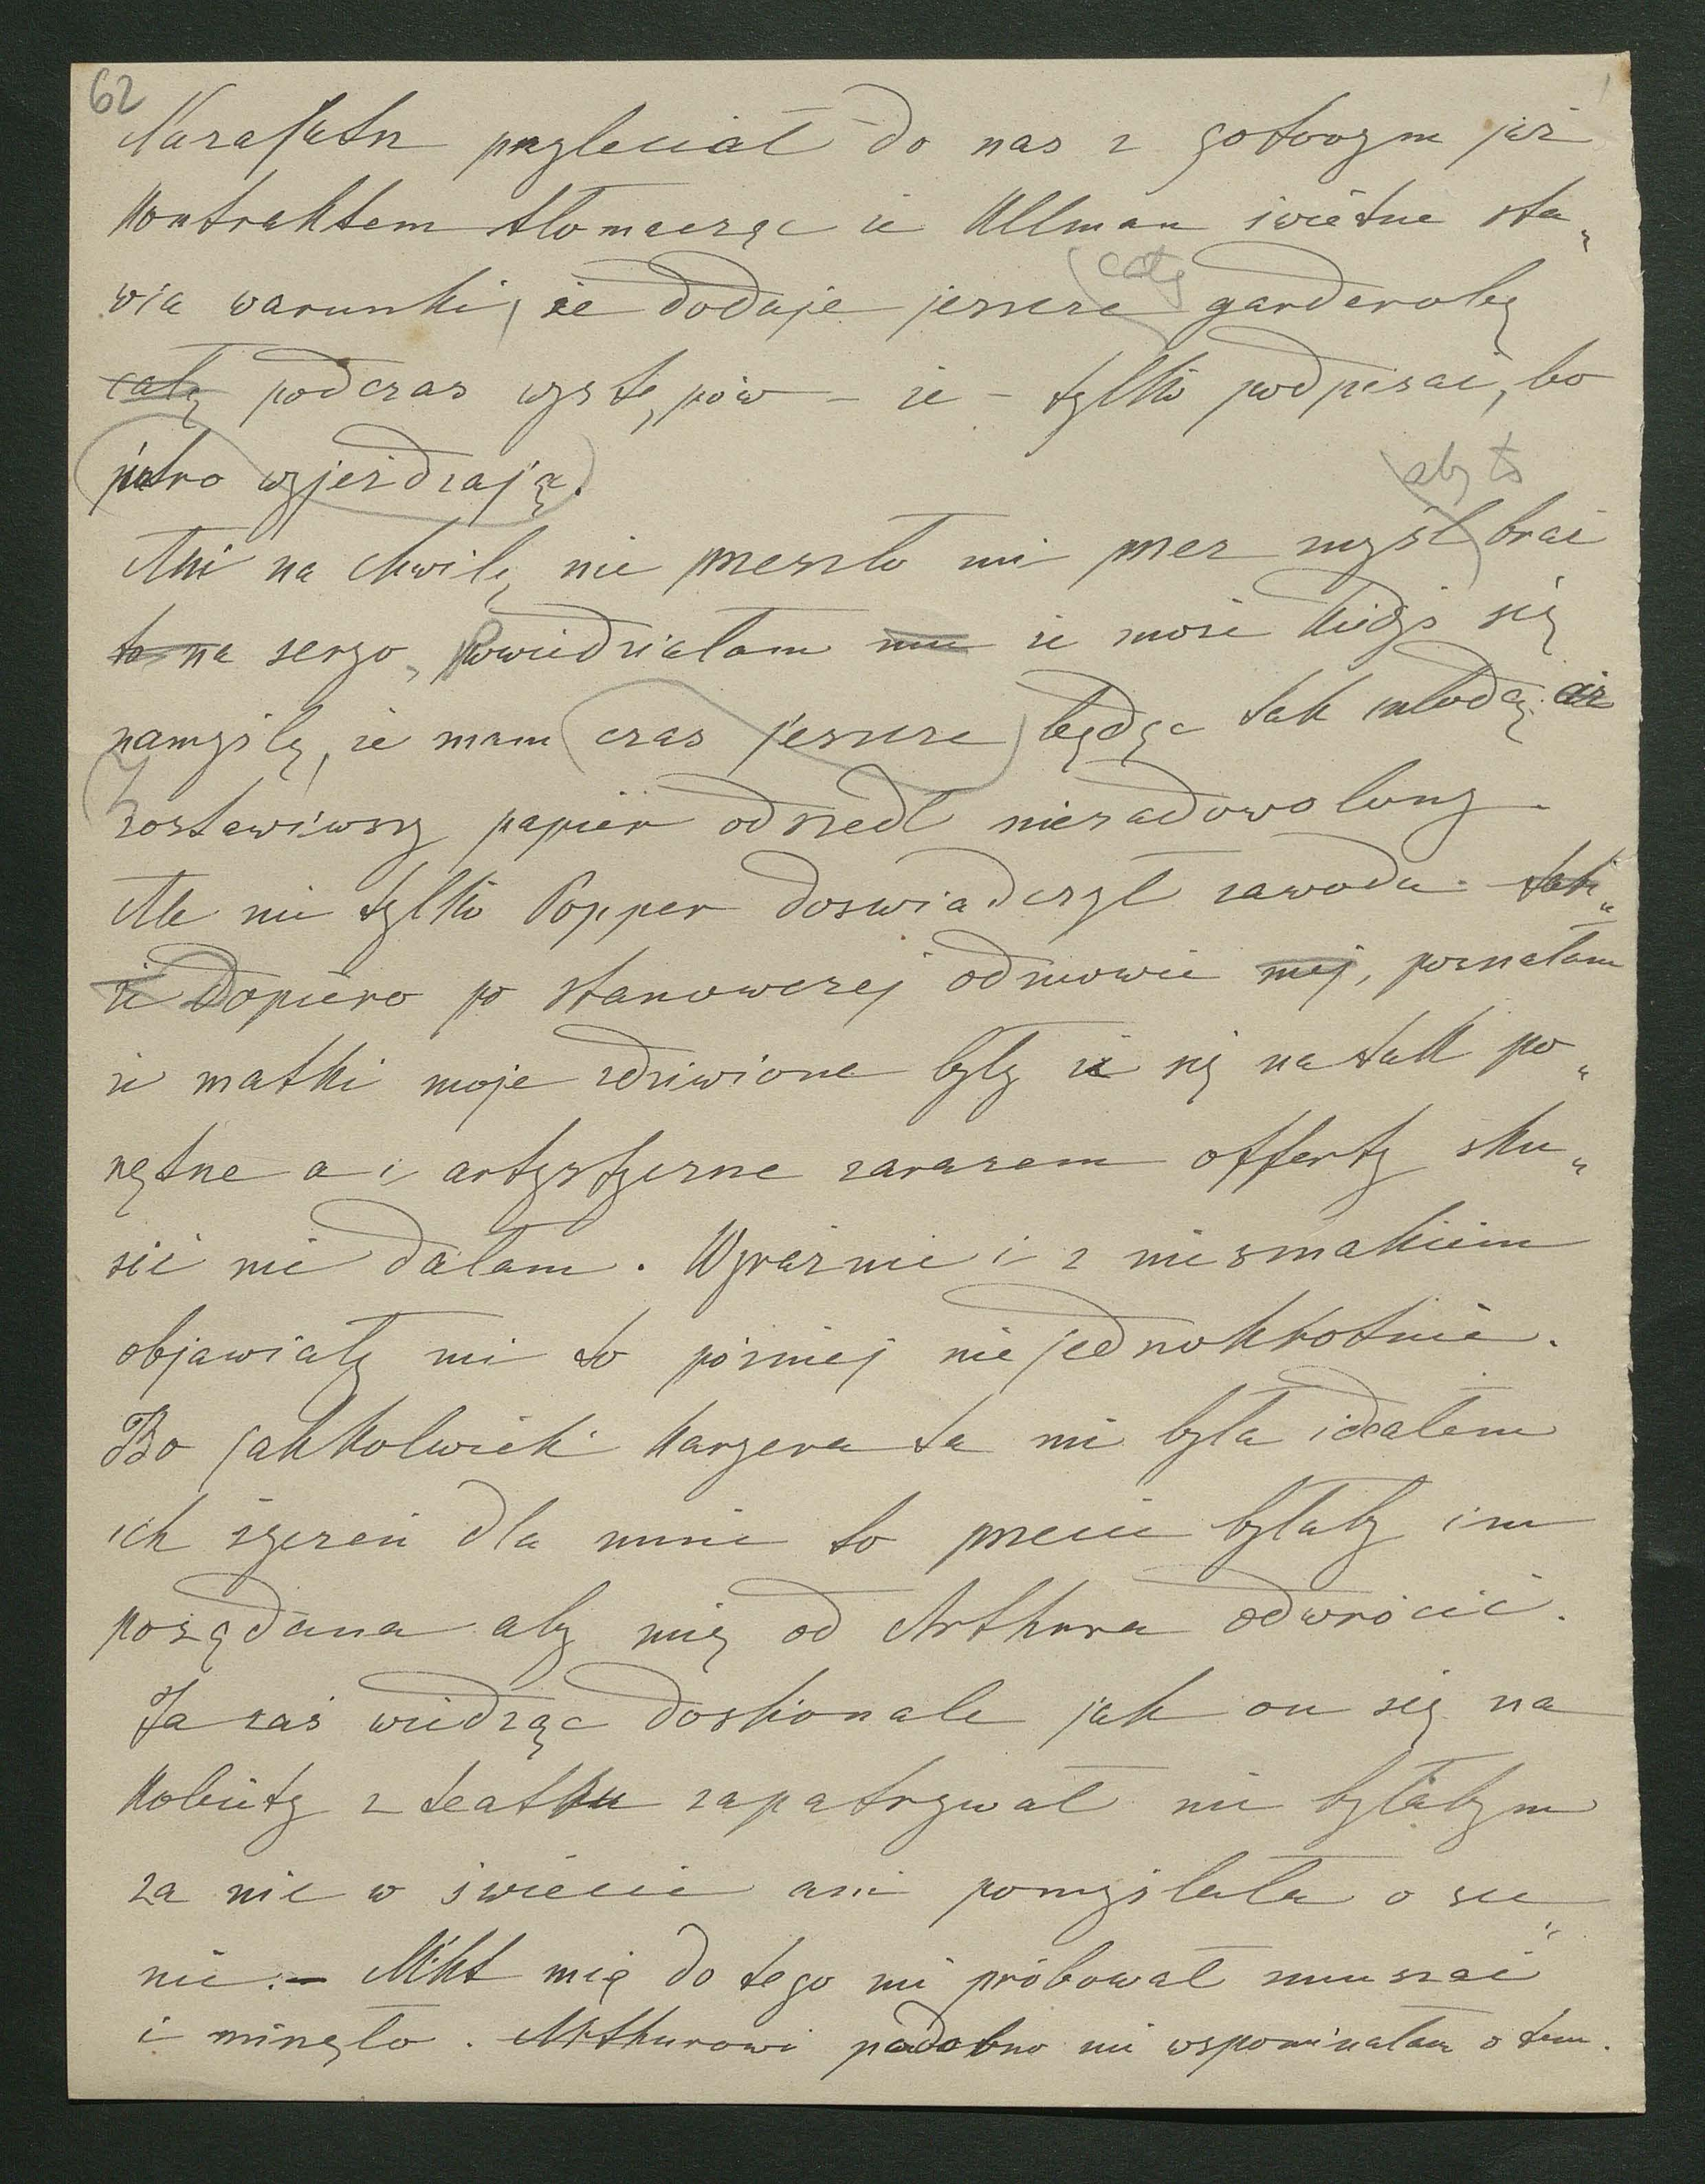 62
Nazajutrz przyleciał do nas z gotowym już
kontraktem tłomacząc że Ullman świetne sta„
wia warunki, że dodaje jeszcze całą garderobę
całą podczas występów – że – tylko podpisać, bo
jutro wyjeżdzają.
aby to
Ani na chwilę nie przeszło mi przez myśl brać
to na seryo, Powiedziałam mu że może kiedyś się
namyślę, że mam czas jeszcze będąc tak młodą. aż
Zostawiwszy papier odszedł niezadowolony.
Ale nie tylko Popper doswiadczył zawodu. tak„
że Dopiero po stanowczej odmowie mej, poznałam
że matki moje zdziwione były że się na tak po„
nętne a i artystyczne zarazem offerty sku„
sić nie dałam. Wyraźnie i z niesmakiem
objawiały mi to poźniej niejednokrotnie.
Bo jakkolwiek karyera ta nie była idealem
ich życzeń dla mnie to przecie byłaby im
pożądana aby mię od Arthura odwrócić.
Ja zaś widząc doskonale jak on się na
kobiety z teatru zapatrywał nie byłabym
za nic w świecie ani pomyślała o sce„
nie. – Nikt mię do tego nie próbował zmuszać
i minęło. Arthurowi podobno nie wspominałam o tem.